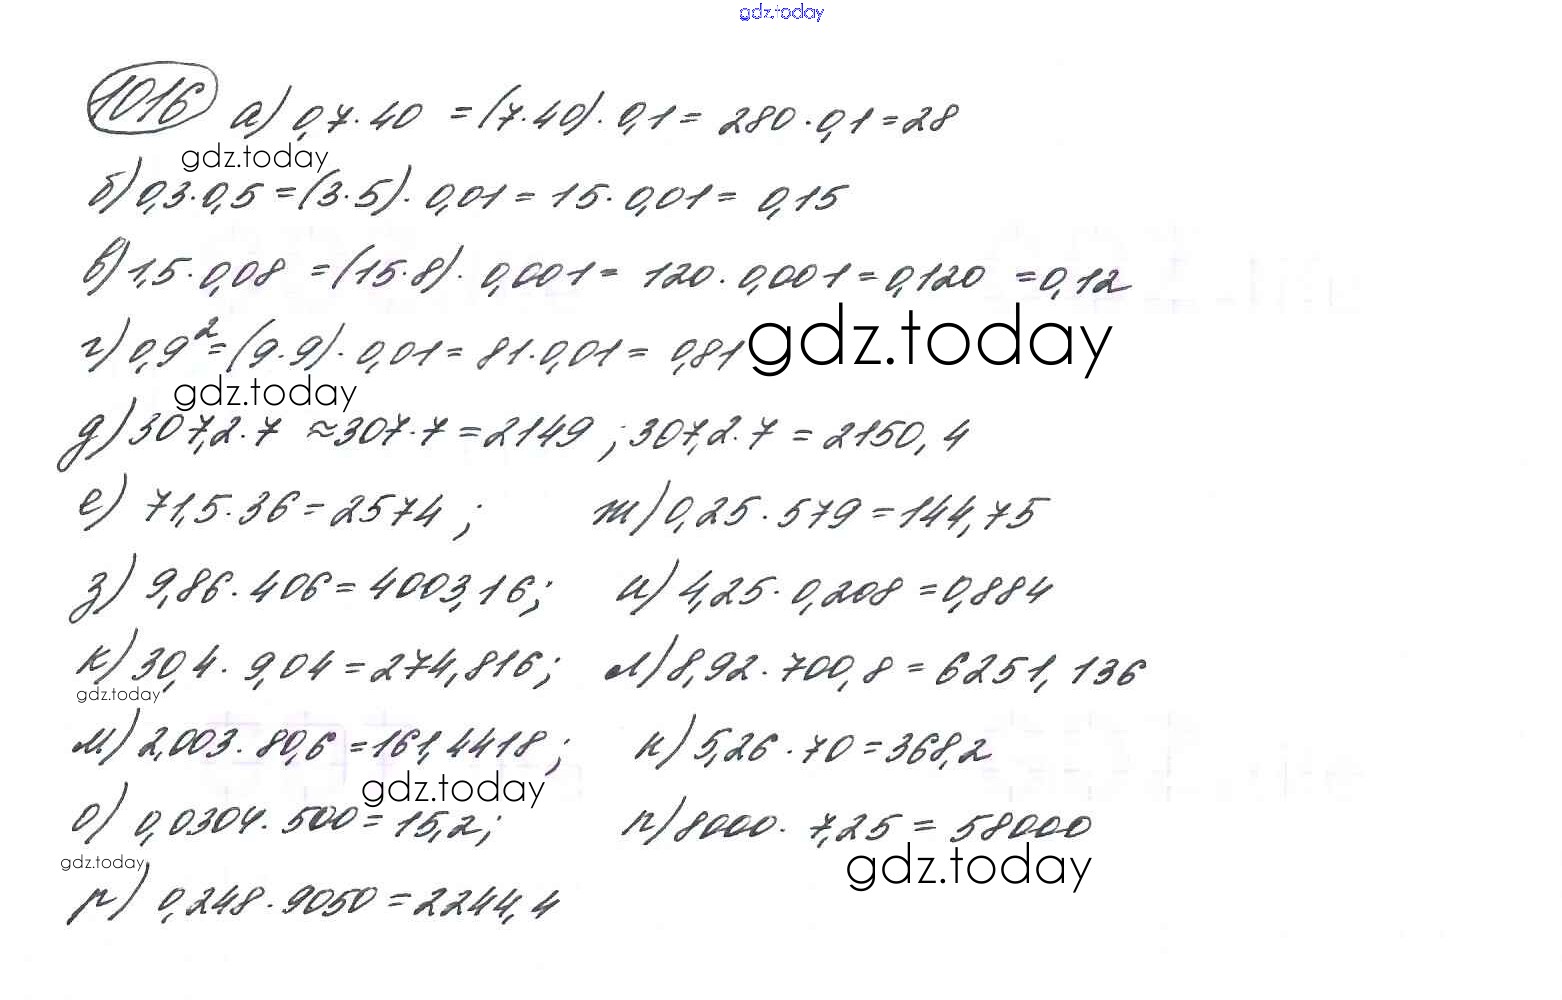 gdz.today
1016 а) 0,7·40 = (7·40)·0,1 = 280·0,1 = 28
gdz.today
б) 0,3·0,5 = (3·5)·0,01 = 15·0,01 = 0,15
в) 1,5·0,08 = (15·8)·0,001 = 120·0,001 = 0,120 = 0,12
г) 0,9² = (9·9)·0,01 = 81·0,01 = 0,81 gdz.today
gdz.today
д) 307,2·7 ≈ 307·7 = 2149 ; 307,2·7 = 2150,4
е) 71,5·36 = 2574 ; ж) 0,25·579 = 144,75
з) 9,86·406 = 4003,16; и) 4,25·0,208 = 0,884
к) 30,4·9,04 = 274,816; л) 8,92·700,8 = 6251,136
gdz.today
м) 2,003·80,6 = 161,4418 ; н) 5,26·70 = 368,2
gdz.today
о) 0,0304·500 = 15,2; п) 8000·7,25 = 58000
gdz.today gdz.today
р) 0,248·9050 = 2244,4